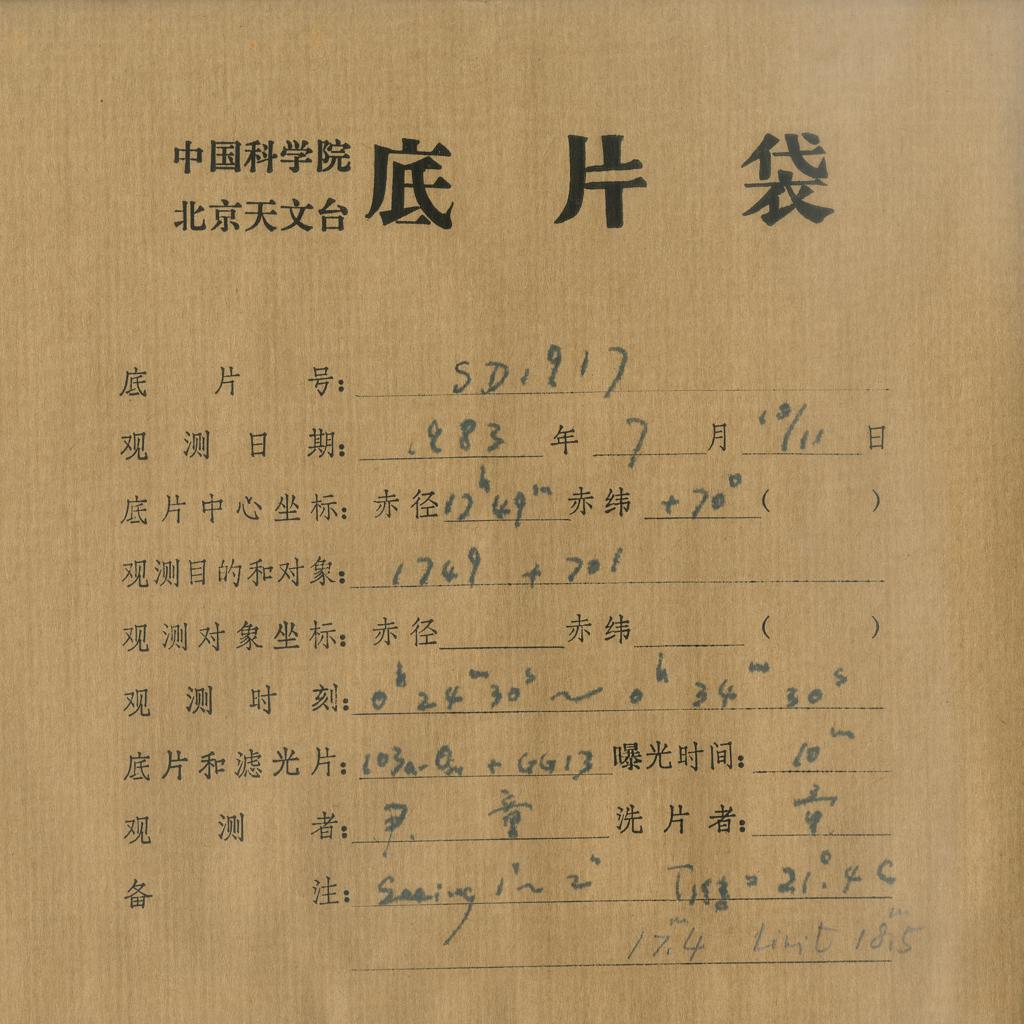 中国科学院
北京天文台
底片袋
底片号: SD1917
观测日期: 1983 年 7 月 10/11 日
底片中心坐标: 赤径 17h 49m 赤纬 +70° ( )
观测目的和对象: 1749 + 701
观测对象坐标: 赤径 赤纬 ( )
观测时刻: 0h 24m 30s ~ 0h 34m 30s
底片和滤光片: 103a-O + GG13 曝光时间: 10m
观测者: 童 洗片者:
备注: Seeing 1"~2" = 21°.4 C
17m.4 limit 18m.5